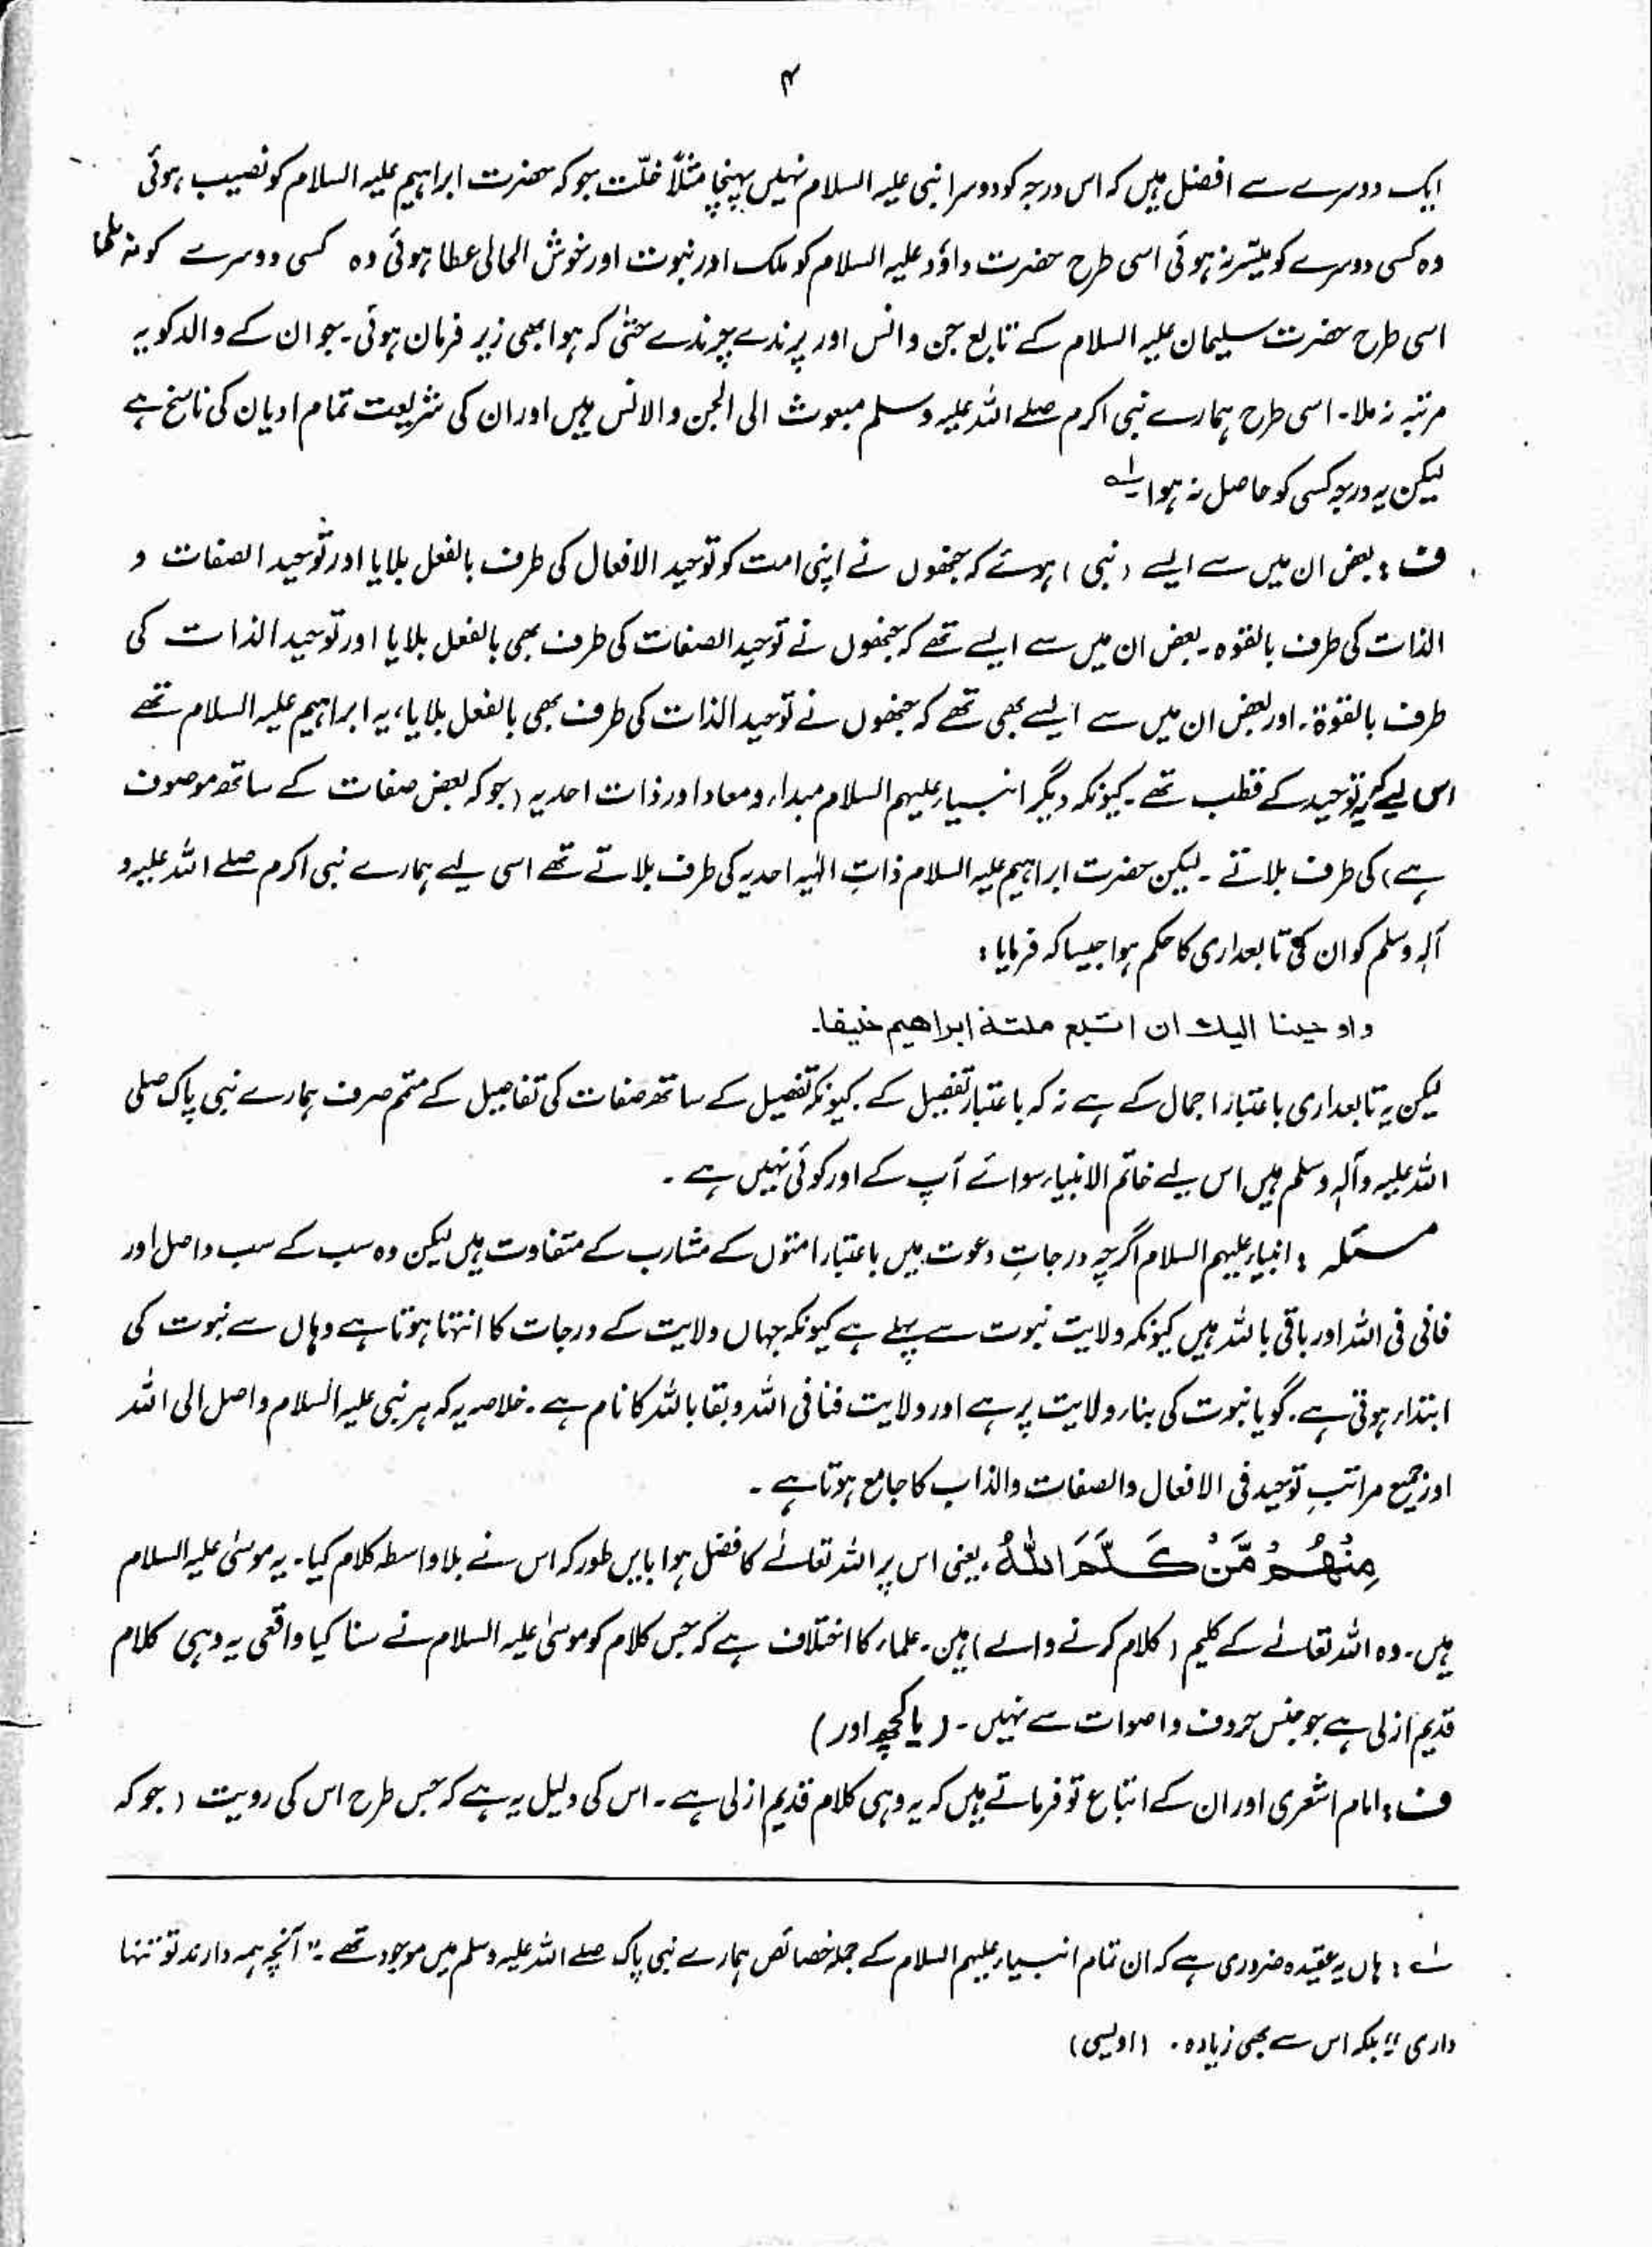 ۴
ایک دوسرے سے افضل ہیں کہ اس درجہ کو دوسرا نبی علیہ السلام نہیں پہنچا مثلاً خلّت جو کہ حضرت ابراہیم علیہ السلام کو نصیب ہوئی
وہ کسی دوسرے کو میسّر نہ ہوئی اسی طرح حضرت داؤد علیہ السلام کو ملک اور نبوت اور خوش الحالی عطا ہوئی وہ کسی دوسرے کو نہ ملا
اسی طرح حضرت سلیمان علیہ السلام کے تابع جن و انس اور پرندے چرندے حتیٰ کہ ہوا بھی زیر فرمان ہوئی۔ جو ان کے والد کو یہ
مرتبہ نہ ملا۔ اسی طرح ہمارے نبی اکرم صلے اللہ علیہ وسلم مبعوث الی الجن والانس ہیں اور ان کی شریعت تمام ادیان کی ناسخ ہے
لیکن یہ درجہ کسی کو حاصل نہ ہوا۔ لہ
ف: بعض ان میں سے ایسے (نبی) ہوئے کہ جنھوں نے اپنی امت کو توحید الافعال کی طرف بالفعل بلایا اور توحید الصفات و
الذات کی طرف بالقوہ۔ بعض ان میں سے ایسے تھے کہ جنھوں نے توحید الصفات کی طرف بھی بالفعل بلایا اور توحید الذات کی
طرف بالقوۃ۔ اور بعض ان میں سے ایسے بھی تھے کہ جنھوں نے توحید الذات کی طرف بھی بالفعل بلایا، یہ ابراہیم علیہ السلام تھے
اس لیے کہ یہ توحید کے قطب تھے۔ کیونکہ دیگر انبیاء علیہم السلام مبداء و معاد اور ذات احدیہ (جو کہ بعض صفات کے ساتھ موصوف
ہے) کی طرف بلاتے۔ لیکن حضرت ابراہیم علیہ السلام ذاتِ الٰہیہ احدیہ کی طرف بلاتے تھے اسی لیے ہمارے نبی اکرم صلے اللہ علیہ و
آلہٖ وسلم کو ان کی تابعداری کا حکم ہوا جیسا کہ فرمایا:
واوحینا الیک ان اتبع ملتہ ابراھیم حنیفا۔
لیکن یہ تابعداری باعتبار اجمال کے ہے نہ کہ باعتبار تفصیل کے۔ کیونکہ تفصیل کے ساتھ صفات کی تفاصیل کے متمم صرف ہمارے نبی پاک صلی
اللہ علیہ وآلہٖ وسلم ہیں اس لیے خاتم الانبیاء سوائے آپ کے اور کوئی نہیں ہے۔
مسئلہ: انبیاء علیہم السلام اگرچہ درجاتِ دعوت میں باعتبار امتوں کے مشارب کے متفاوت ہیں لیکن وہ سب کے سب واصل اور
فانی فی اللہ اور باقی باللہ ہیں کیونکہ ولایت نبوت سے پہلے ہے کیونکہ جہاں ولایت کے درجات کا انتہا ہوتا ہے وہاں سے نبوت کی
ابتداء ہوتی ہے۔ گویا نبوت کی بناء ولایت پر ہے اور ولایت فنا فی اللہ و بقا باللہ کا نام ہے۔ خلاصہ یہ کہ ہر نبی علیہ السلام واصل الی اللہ
اور جمیع مراتبِ توحید فی الافعال والصفات والذات کا جامع ہوتا ہے۔
مِنْهُمْ مَّنْ كَلَّمَ اللّٰهُ، یعنی اس پر اللہ تعالٰے کا فضل ہوا بایں طور کہ اس نے بلاواسطہ کلام کیا۔ یہ موسیٰ علیہ السلام
ہیں۔ وہ اللہ تعالٰے کے کلیم (کلام کرنے والے) ہیں۔ علماء کا اختلاف ہے کہ جس کلام کو موسیٰ علیہ السلام نے سنا کیا واقعی یہ وہی کلام
قدیم ازلی ہے جو جنس حروف و اصوات سے نہیں۔ (یا کچھ اور)
ف: امام اشعری اور ان کے اتباع تو فرماتے ہیں کہ یہ وہی کلام قدیم ازلی ہے۔ اس کی دلیل یہ ہے کہ جس طرح اس کی رویت (جو کہ
لہ: ہاں یہ عقیدہ ضروری ہے کہ ان تمام انبیاء علیہم السلام کے جملہ خصائص ہمارے نبی پاک صلے اللہ علیہ وسلم میں موجود تھے۔ "آنچہ ہمہ دارند تو تنہا
داری" بلکہ اس سے بھی زیادہ۔ (اویسی)